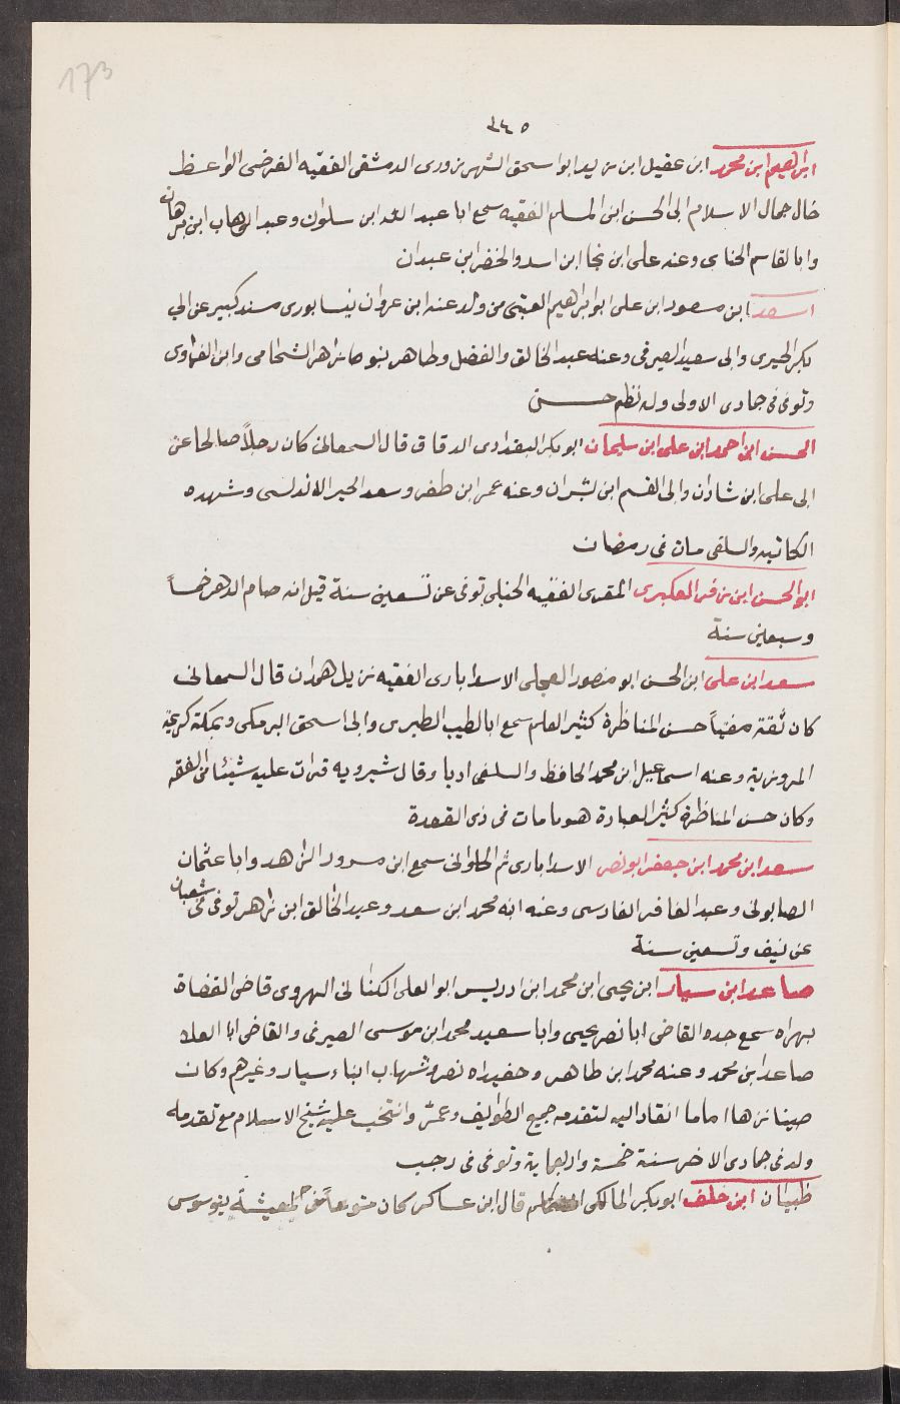 173
٣٤٥
ابراهيم ابن محمد ابن عقيل ابن زيد ابو اسحق الشهرزورى الدمشقى الفقيه الفرضى الواعظ
خال جمال الاسلام ابى الحسن ابن المسلم الفقيه سمع ابا عبد الله ابن سلوان وعبد الوهاب ابن برهان
وابا لقاسم الحناى وعنه على ابن نجا ابن اسد والخضر ابن عبدان
اسعد ابن مسعود ابن على ابو ابراهيم العتبى من ولد عتبه ابن غزوان نيسابورى مسند كبير عن ابى
بكر الحيرى وابى سعيد الصيرفى وعنه عبد الخالق والفضل وطاهر بنو زاهر الشحامى وابن الفراوى
وتوفى فى جمادى الاولى وله نظم حسن
الحسن ابن احمد ابن على ابن سليمان ابو بكر البغدادى الدقاق قال السمعانى كان رجلاً صالحا عن
ابى على ابن شاذان وابى القسم ابن بشران وعنه عمر ابن ظفر وسعد الخير الاندلسى وشهده
الكاتبه والسلفى مات فى رمضان
ابو الحسن ابن زفر العكبرى المقرى الفقيه الحنبلى توفى عن تسعين سنة قيل انه صام الدهر خمساً
وسبعين سنة
سعد ابن على ابن الحسن ابو منصور العجلى الاسدابادى الفقيه نزيل همدان قال السمعانى
كان ثقة مفتياً حسن المناظرة كثير العلم سمع ابا لطيب الطبرى وابى اسحق البرمكى وبمكة كريمة
المروزية وعنه اسماعيل ابن محمد الحافظ والسلفى ادبا وقال شيرويه قرات عليه شيئا من الفقه
وكان حسن المناظرة كثير العبادة هوبا مات فى ذى القعدة
سعد ابن محمد ابن جعفر ابو نصر الاسدابادى ثم الحلوانى سمع ابن مسرور الزاهد وابا عثمان
الصابونى وعبد الغافر الفارسى وعنه ابنه محمد ابن سعد وعبد الخالق ابن زاهر توفى فى شعبان
عن نيف وتسعين سنة
صاعد ابن سيار ابن يحيى ابن محمد ابن ادريس ابو العلى الكنانى الهروى قاضى القضاة
بهراه سمع جده القاضى ابا نصر يحيى وابا سعيد محمد ابن موسى الصيرفى والقاضى ابا العلا
صاعد ابن محمد وعنه محمد ابن طاهر وحفيداه نصر وشهاب ابناء سيار وغيرهم وكان
صينا نزها اماما انقاد اليه لتقدمه جميع الطوايف وعمر وانتخب عليه شيخ الاسلام مع تقدمه
ولد فى جمادى الاخر سنة خمسة واربعماية وتوفى فى رجب
ظبيان ابن خلف ابو بكر المالكى قال ابن عساكر كان متورعاً فى المعيشة يتوسوس